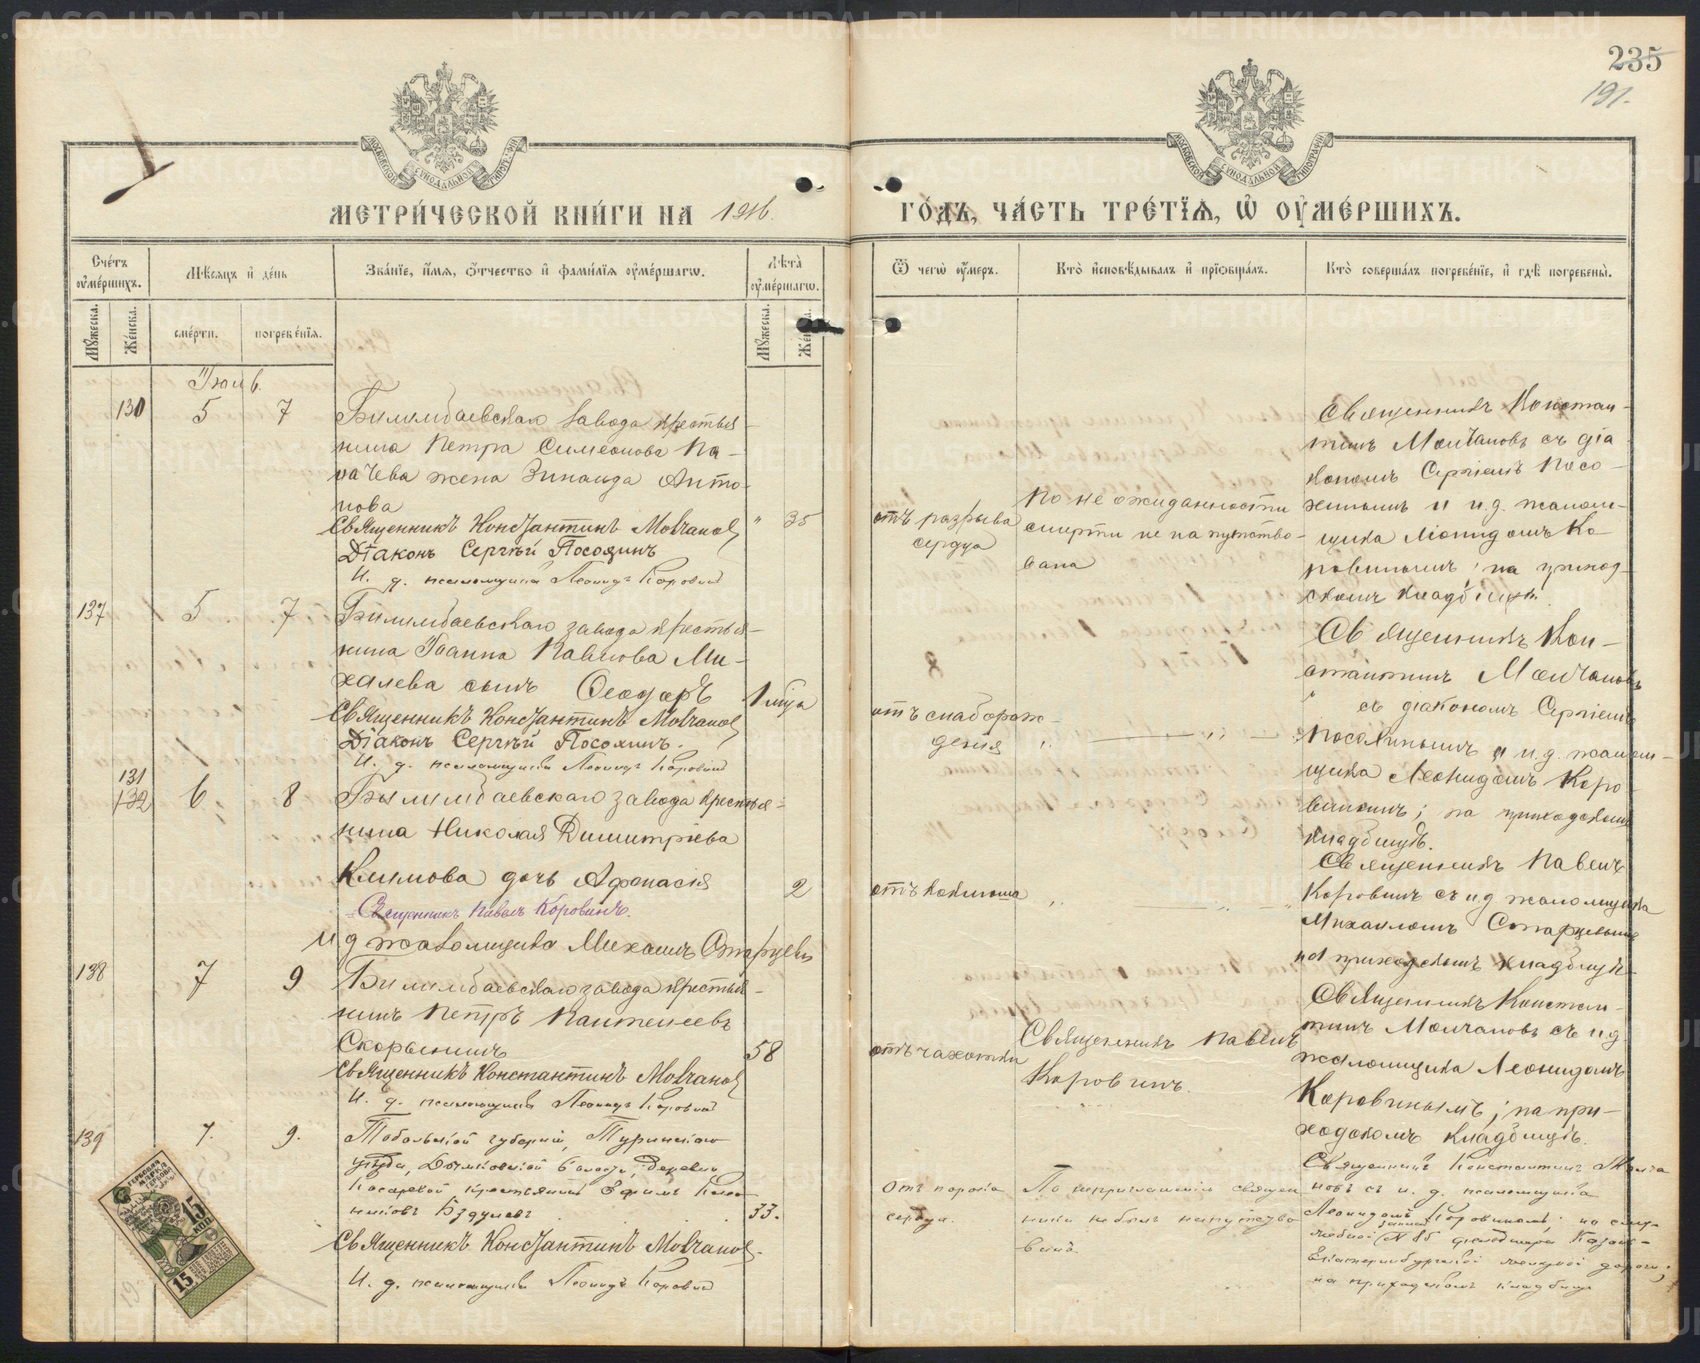 235
191.
МЕТРИ́ЧЕСКОЙ КНИ́ГИ НА 1916.
ГО́ДЪ, ЧА́СТЬ ТРЕ́ТЇѦ, Ѡ҆ ОУ҆МЕ́РШИХЪ.
Сче́тъ оу҆ме́ршихъ.
Мѣ́сяцъ и҆ де́нь
Зва́нїе, и҆́мя, ѻ҆́тчество и҆ фами́лїя оу҆ме́ршагѡ.
Лѣ́та̀ оу҆ме́ршагѡ.
Ѿ чегѡ̀ оу҆́меръ.
Кто̀ и҆сповѣ́дывалъ и҆ прїѡбща́лъ.
Кто̀ соверша́лъ погребе́нїе, и҆ гдѣ̀ погребены̀.
Мꙋ́жеска.
Же́нска.
сме́рти.
погребе́нїя.
Мꙋ́жеска.
Же́нска.
Іюль.
130 5 7
Билимбаевскаго завода крестья-
нина Петра Симеонова
жена Зинаида Анто-
нова
Священникъ Константинъ Молчановъ
Діаконъ Сергѣй Посохинъ
И. д. псаломщика Леонидъ Коровинъ
" 35
отъ разрыва
сердца
По неожиданности
смерти не напутство-
вана
Священникъ Констан-
тинъ Молчановъ съ діа-
кономъ Сергіемъ Посо-
хинымъ и и.д. псалом-
щика Леонидомъ Ко-
ровинымъ; на приход-
скомъ кладбищѣ.
137 5 7
Билимбаевскаго завода крестья-
нина Іоанна Павлова Ми-
халева сынъ Ѳеодоръ
Священникъ Константинъ Молчановъ
Діаконъ Сергѣй Посохинъ.
И. д. псаломщика Леонидъ Коровинъ
1 мѣца
отъ слаборож-
денія
" — " —
Священникъ Кон-
стантинъ Молчановъ
съ діакономъ Сергіемъ
Посохинымъ и и.д. псалом-
щика Леонидомъ Коро-
винымъ; на приходскомъ
кладбищѣ.
131
132 6 8
Билимбаевскаго завода крестья-
нина Николая Димитріева
Климова дочь Аѳанасія
Священникъ Павелъ Коровинъ.
И д псаломщика Михаилъ Старцевъ
2
отъ коклюша
" — "
Священникъ Павелъ
Коровинъ съ и.д. псаломщика
Михаиломъ Старцевымъ
на приходскомъ кладбищѣ
138 7 9
Билимбаевскаго завода крестья-
нинъ Петръ Пантелеевъ
Скорынинъ
Священникъ Константинъ Молчановъ
И. д. псаломщика Леонидъ Коровинъ
58
отъ чахотки
Священникъ Павелъ
Коровинъ.
Священникъ Констан-
тинъ Молчановъ съ и.д.
псаломщика Леонидомъ
Коровинымъ; на при-
ходскомъ кладбищѣ.
139 7. 9.
Тобольской губерніи, Туринскаго
уѣзда, волости, деревни
крестьянинъ Ефимъ
Священникъ Константинъ Молчановъ.
И. д. псаломщика Леонидъ Коровинъ
33.
Отъ порока
сердца.
По неприглашенію священ
ника не былъ напутство
ванъ.
Священникъ Константинъ Молча
новъ съ и. д. псаломщика
Леонидомъ Коровинымъ;
Екатеринбургской желѣзной дороги;
на приходскомъ кладбищѣ
ГЕРБОВАЯ МАРКА
15 КОП
15
METRIKI.GASO-URAL.RU